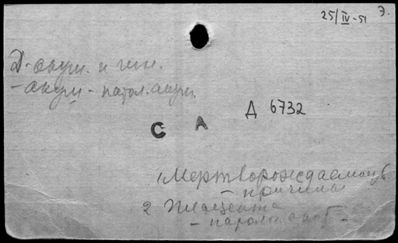 25/IV-51 Э.
Д-акуш. и гин.
-акуш - патол. акуш.
С А Д 6732
1 Мертворождаемость
- причины
2 Плацента